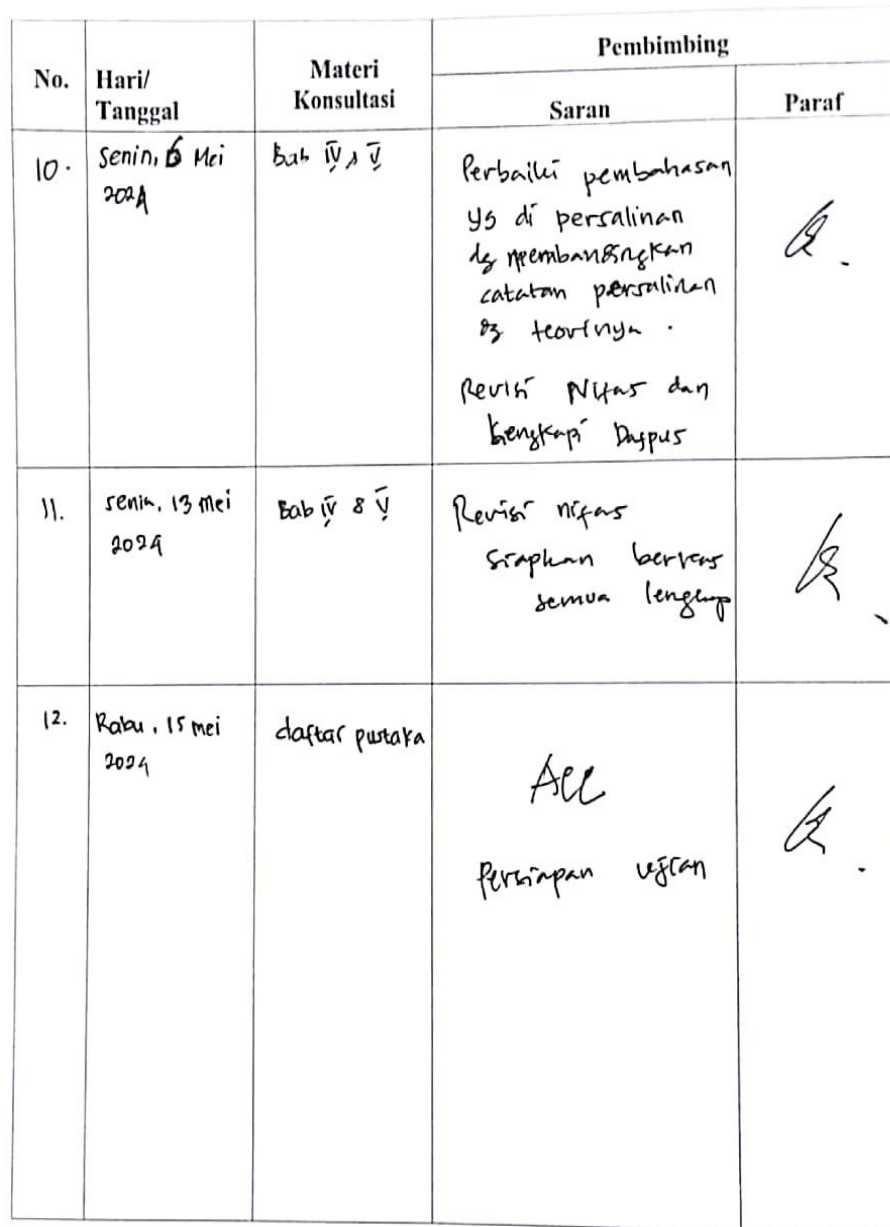 No.
Hari/
Tanggal
Materi
Konsultasi
Pembimbing
Saran
Paraf
10.
Senin, 6 Mei
2024
Bab IV & V
Perbaiki pembahasan
yg di persalinan
dg membandingkan
catatan persalinan
dg teorinya.
Revisi Nifas dan
Lengkapi Dappus
11.
Senin, 13 Mei
2024
Bab IV & V
Revisi nifas
siapkan berkas
semua lengkap
12.
Rabu, 15 mei
2024
daftar pustaka
Acc
Persiapan ujian